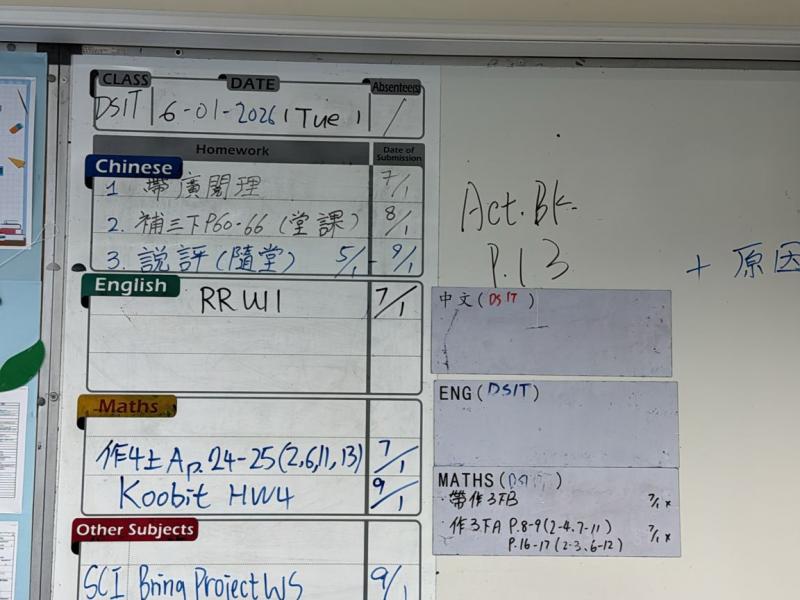 CLASS DATE Absentees
DSIT 6-01-2026 (Tue) /
Homework Date of Submission
Chinese
1 帶廣閱理 7/1
2. 補三下P60-66 (堂課) 8/1
3. 說評 (隨堂) 5/1 - 9/1
English
RR WU1 7/1
Maths
作4上A p.24-25 (2,6,11,13) 7/1
Koobit HW4 9/1
Other Subjects
SCI Bring Project WS 9/1
Act. Bk.
P.13
+ 原因
中文(DSIT)
ENG(DSIT)
MATHS(DSIT)
·帶作3下B 7/1 x
·作3下A P.8-9(2-4,7-11) 7/1 x
P.16-17(2-3,6-12)